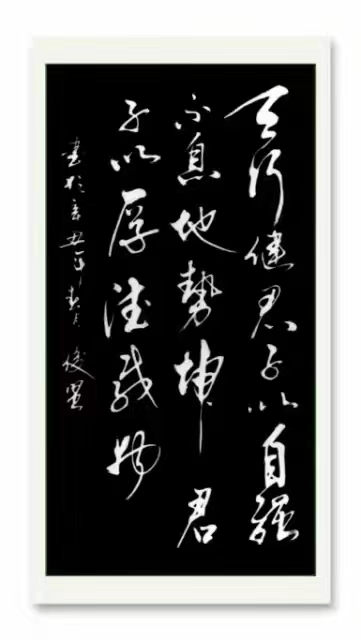 天行健君子以自强
不息地势坤君
子以厚德载物
书于辛丑年春月 俊